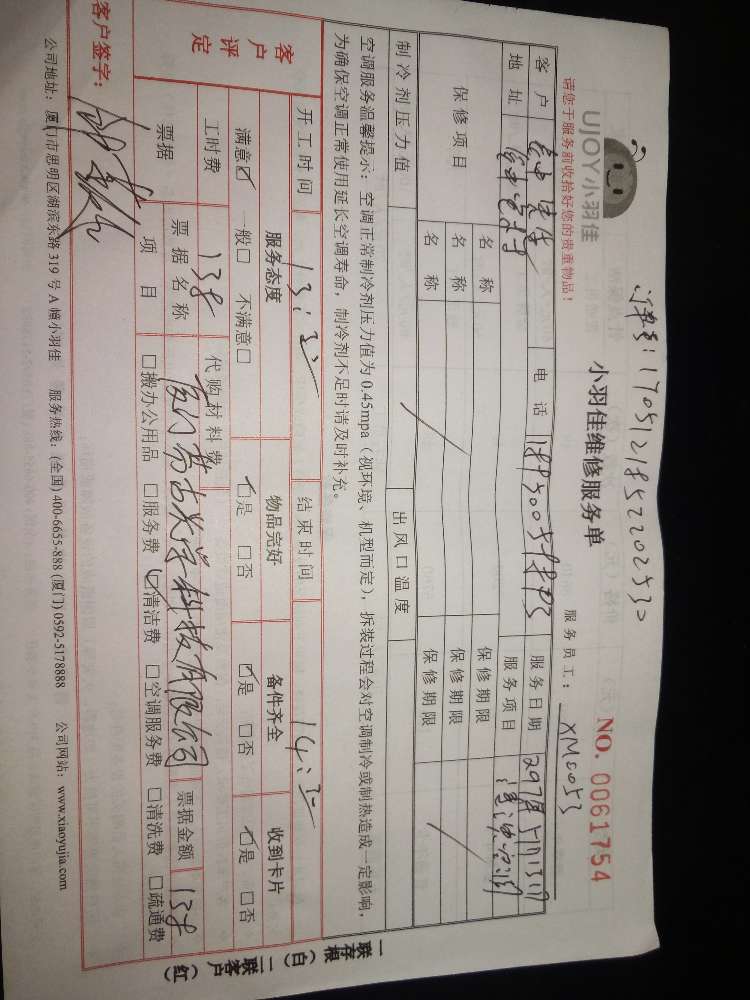 订单号:1705121852202530
UJOY小羽佳
小羽佳维修服务单
NO. 0061754
请您于服务前收拾好您的贵重物品!
服务员工: XM0053
客户 电话 服务日期 2017年5月13日
地址 服务项目
保修项目 名称 保修期限
名称 保修期限
名称 保修期限
制冷剂压力值 出风口温度
空调服务温馨提示:空调正常制冷剂压力值为0.45mpa(视环境、机型而定),拆装过程会对空调制冷或制热造成一定影响,
为确保空调正常使用延长空调寿命,制冷剂不足时请及时补充。
开工时间 13:30 结束时间 14:30
客户评定 服务态度 物品完好 备件齐全 收到卡片
满意☑ 一般□ 不满意□ ☑是 □否 ☑是 □否 ☑是 □否
工时费 138 代购材料费
票据 票据名称 科技有限公司 票据金额 138
项目 □搬办公用品 □服务费 ☑清洁费 □空调服务费 □清洗费 □疏通费
客户签字:
公司地址:厦门市思明区湖滨东路319号A幢小羽佳 服务热线:(全国)400-6655-888 (厦门)0592-5178888 公司网站:www.xiaoyujia.com
一联存根(白) 二联客户(红)